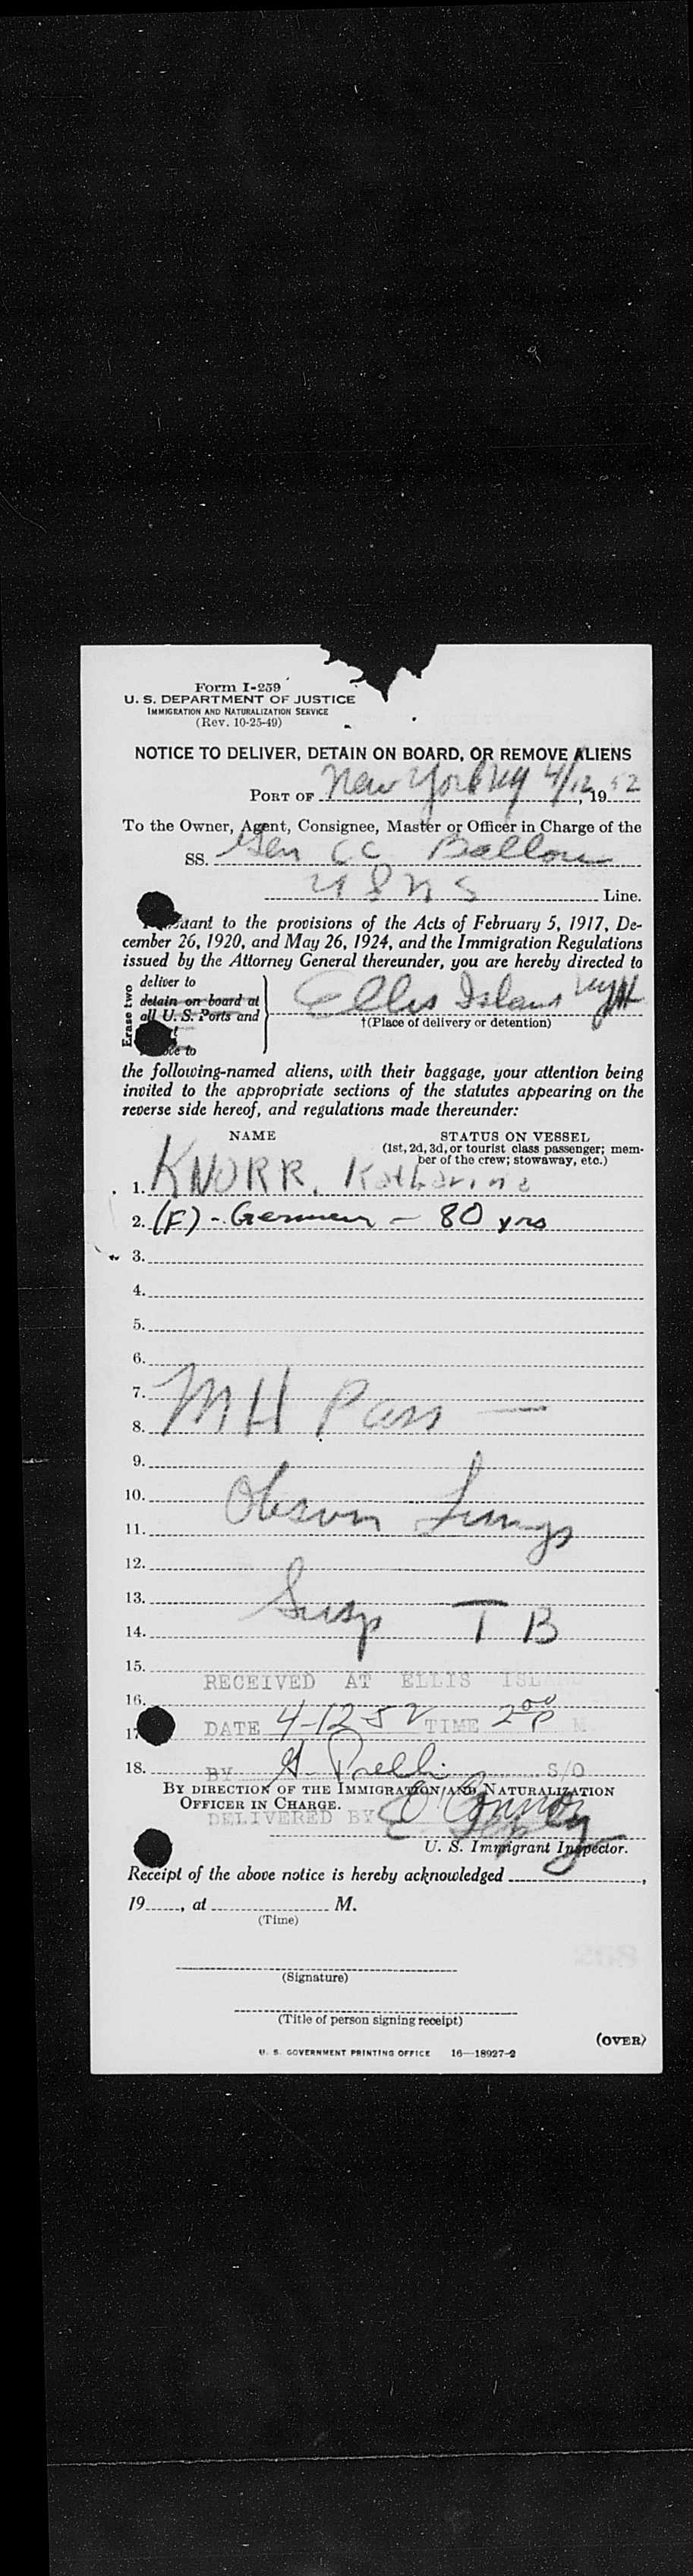 Form I-259
U. S. DEPARTMENT OF JUSTICE
IMMIGRATION AND NATURALIZATION SERVICE
(Rev. 10-25-49)
NOTICE TO DELIVER, DETAIN ON BOARD, OR REMOVE ALIENS
PORT OF New York NY 4/12, 1952
To the Owner, Agent, Consignee, Master or Officer in Charge of the
SS. Gen CC Ballou
USNS Line.
uant to the provisions of the Acts of February 5, 1917, De-
cember 26, 1920, and May 26, 1924, and the Immigration Regulations
issued by the Attorney General thereunder, you are hereby directed to
Erase two
deliver to
detain on board at
all U. S. Ports and
to
Ellis Island
†(Place of delivery or detention)
the following-named aliens, with their baggage, your attention being
invited to the appropriate sections of the statutes appearing on the
reverse side hereof, and regulations made thereunder:
NAME STATUS ON VESSEL
(1st, 2d, 3d, or tourist class passenger; mem-
ber of the crew; stowaway, etc.)
1. KNORR, Katharina
2. (F) - German - 80 yrs
3.
4.
5.
6.
7. MH Pass —
8.
9.
10. Observ Lungs
11.
12.
13. Susp TB
14.
15.
RECEIVED AT ELLIS ISL
16.
DATE 4-12-52 TIME 2 00 P M
17
18.
BY S/O
BY DIRECTION OF THE IMMIGRATION AND NATURALIZATION
OFFICER IN CHARGE.
DELIVERED BY O'Connor
U. S. Immigrant Inspector.
Receipt of the above notice is hereby acknowledged ,
19 , at M.
(Time)
(Signature)
(Title of person signing receipt)
(OVER)
U. S. GOVERNMENT PRINTING OFFICE 16—18927-2